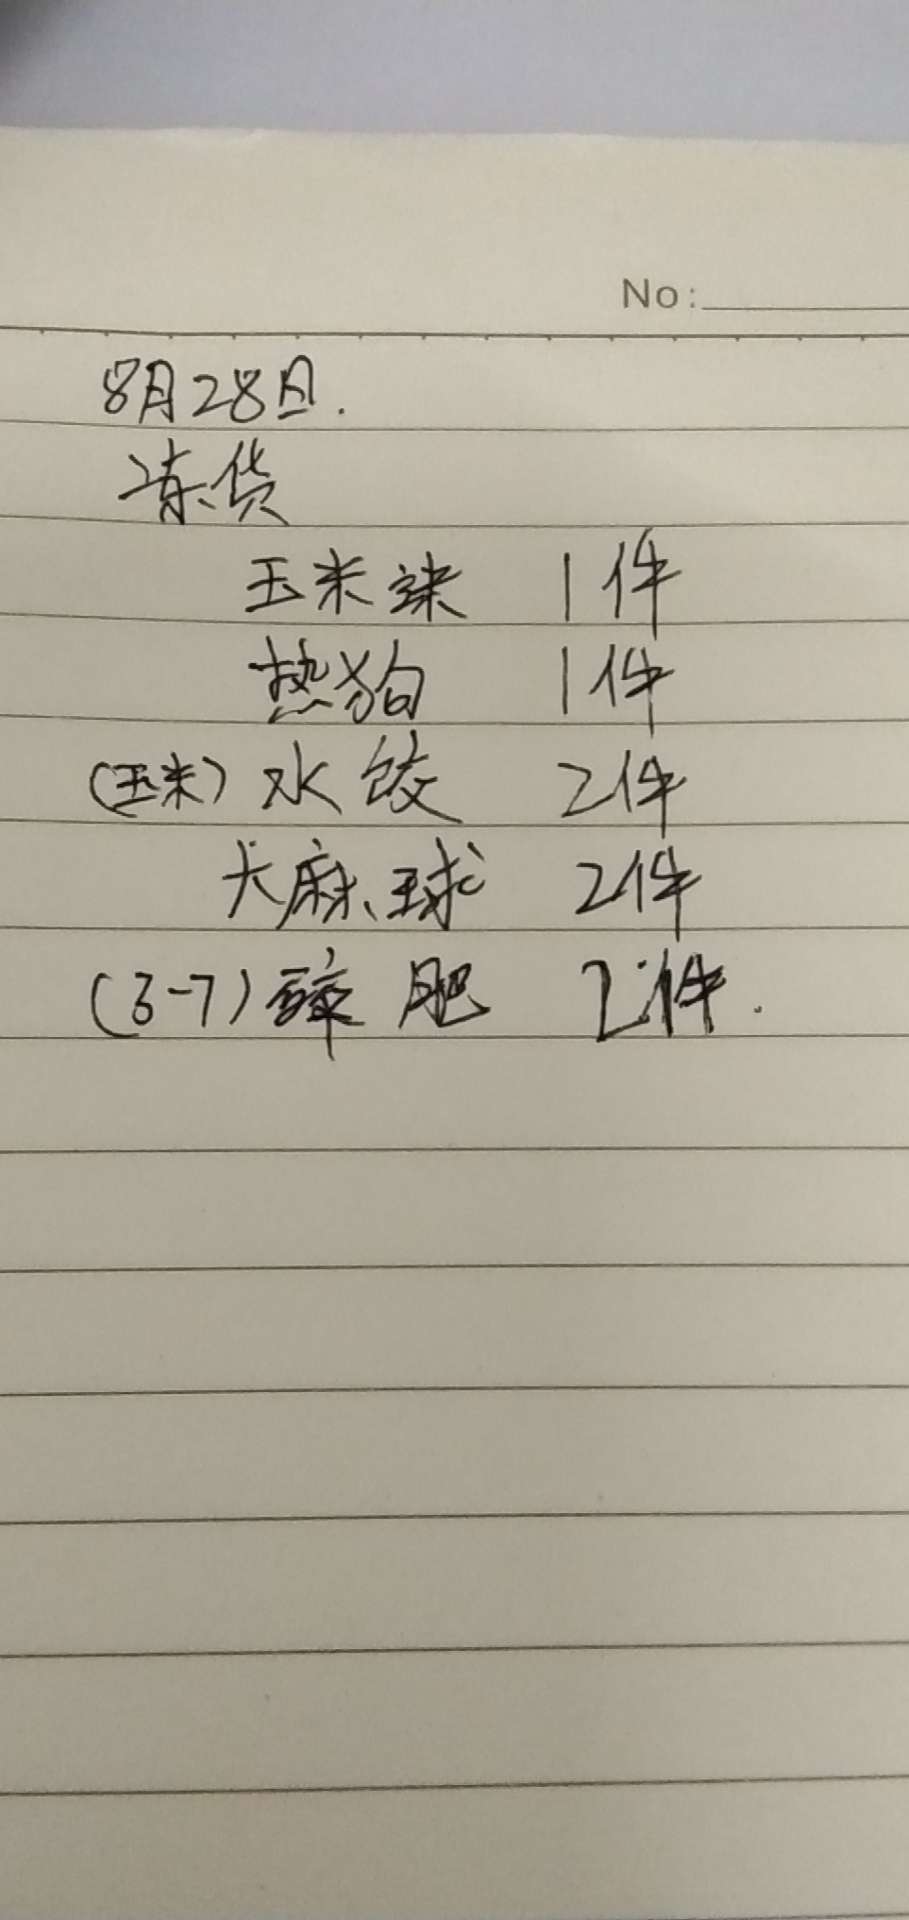 No:
8月28日.
冻货
玉米 1件
热狗 1件
(玉米) 水饺 2件
大麻球 2件
(3-7) 肥 2件.